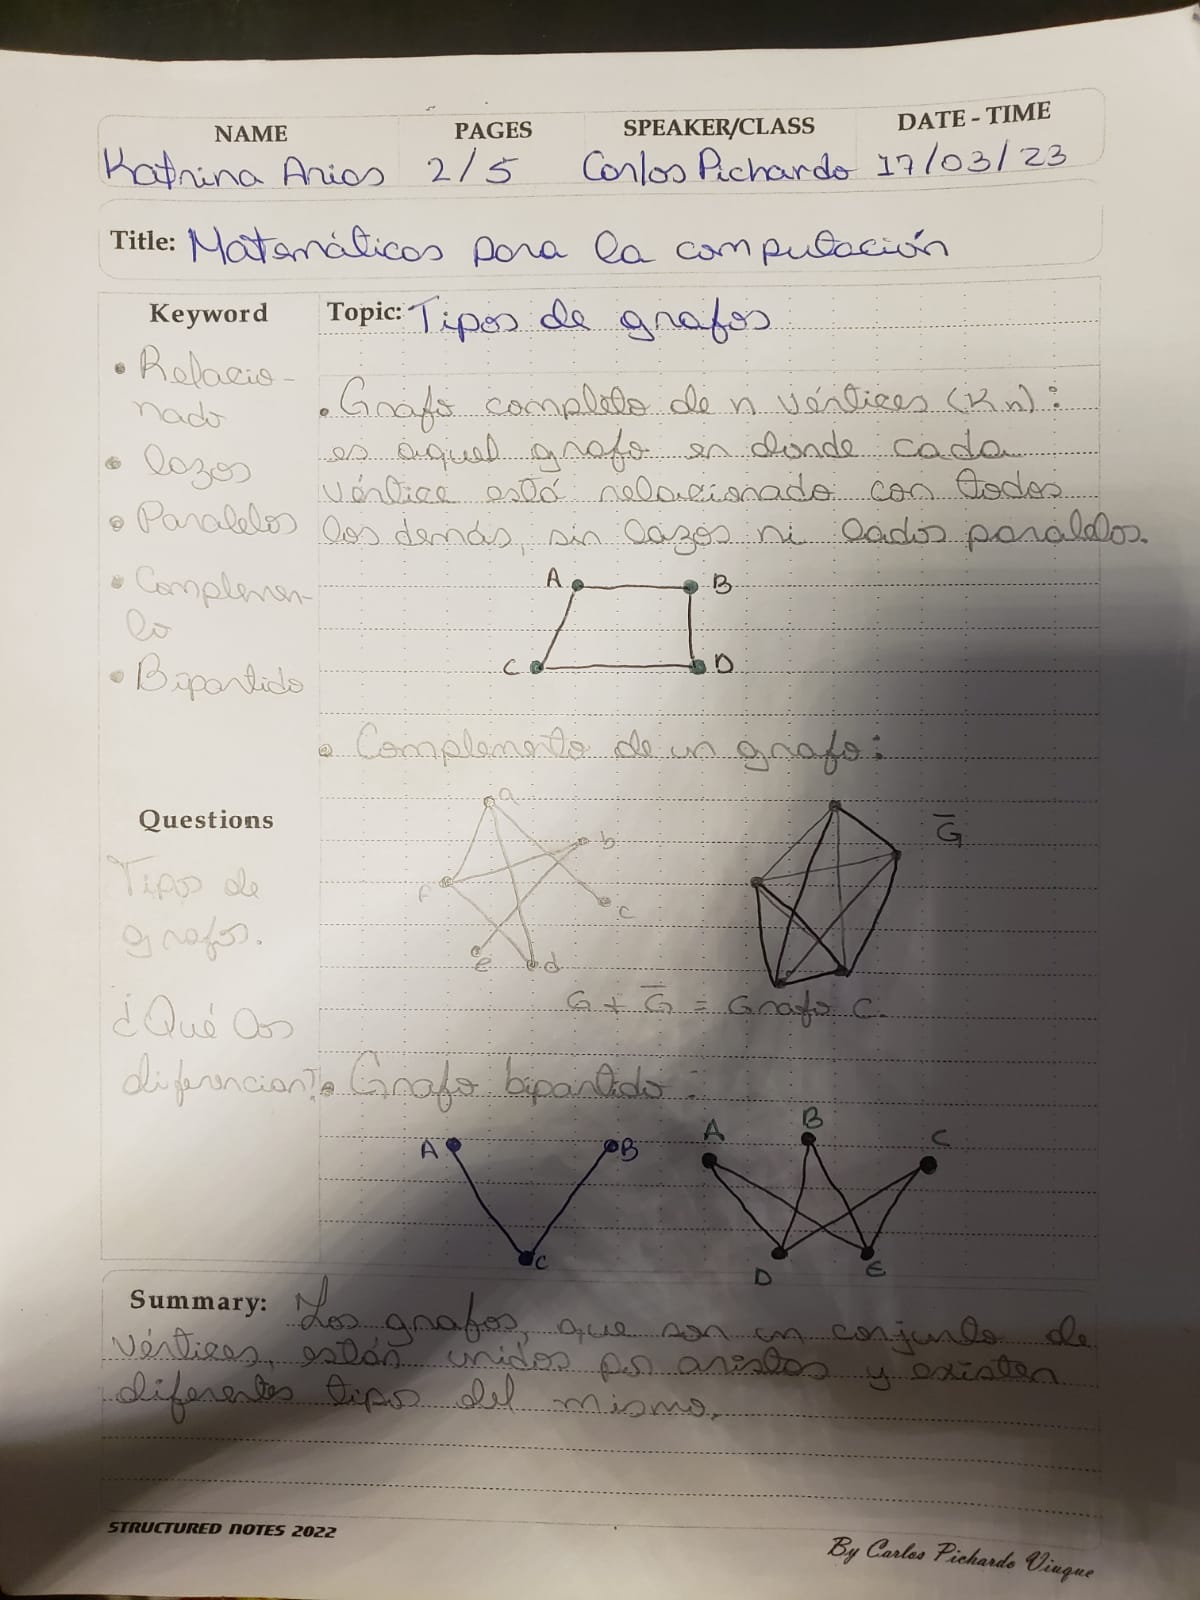 NAME PAGES SPEAKER/CLASS DATE - TIME
Katrina Arias 2/5 Carlos Pichardo 17/03/23
Title: Matemáticas para la computación
Keyword
• Relacio-
nado
• lazos
• Paralelos
• Complemen-
to
• Bipartido
Questions
Tipos de
grafos.
¿Qué los
diferencian?
Topic: Tipos de grafos
• Grafo completo de n vértices (Kn):
es aquel grafo en donde cada
vértice está relacionado con todos
los demás, sin lazos ni lados paralelos.
A B
C D
• Complemento de un grafo:
a
b
f
c
e d
G̅
G + G̅ = Grafo C.
• Grafo bipartido:
A B
C
A B C
D E
Summary: Los grafos, que son un conjunto de
vértices, están unidos por aristas y existen
diferentes tipos del mismo.
STRUCTURED NOTES 2022
By Carlos Pichardo Viuque